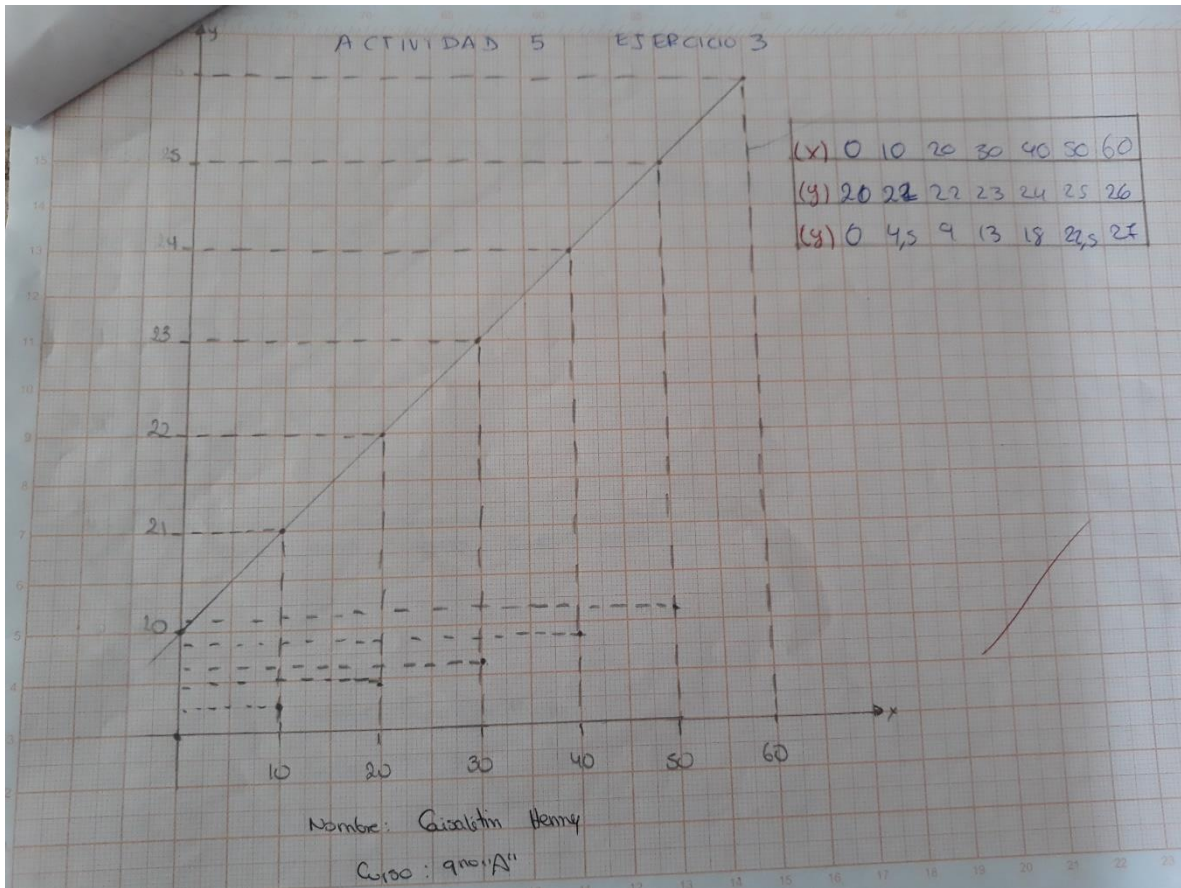 y
ACTIVIDAD 5 EJERCICIO 3
(x) 0 10 20 30 40 50 60
(y) 20 22 22 23 24 25 26
(y) 0 4,5 9 13 18 22,5 27
25
24
23
22
21
20
x
10 20 30 40 50 60
Nombre: Henry
Curso: 9no "A"